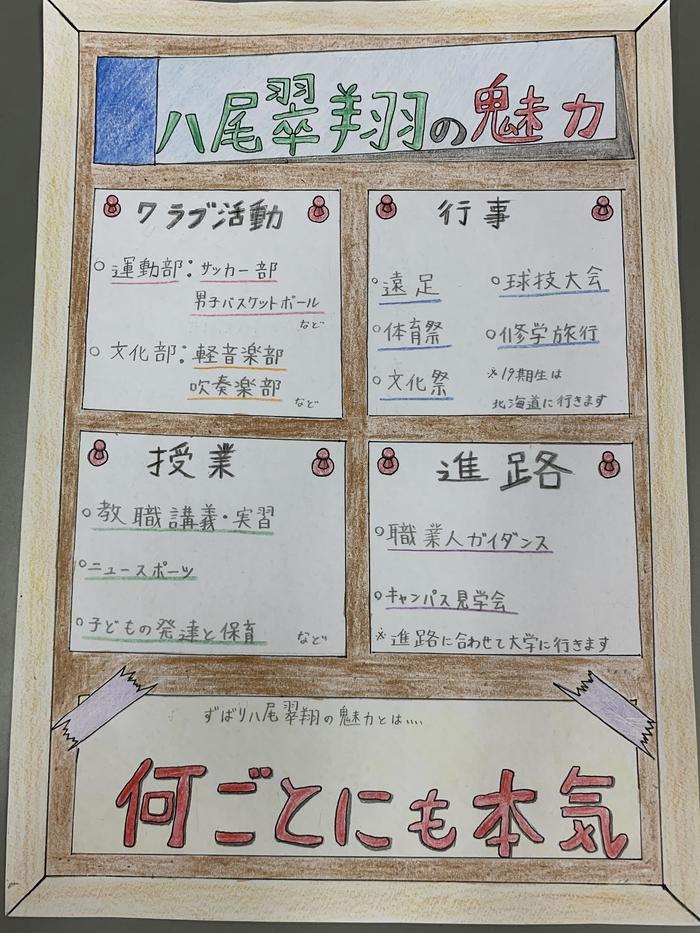 八尾翠翔の魅力
クラブ活動
○運動部：サッカー部
男子バスケットボール
など
○文化部：軽音楽部
吹奏楽部
など
行事
○遠足
○球技大会
○体育祭
○修学旅行
○文化祭
※19期生は
北海道に行きます
授業
○教職講義・実習
○ニュースポーツ
○子どもの発達と保育 など
進路
○職業人ガイダンス
○キャンパス見学会
※進路に合わせて大学に行きます
ずばり八尾翠翔の魅力とは....
何ごとにも本気